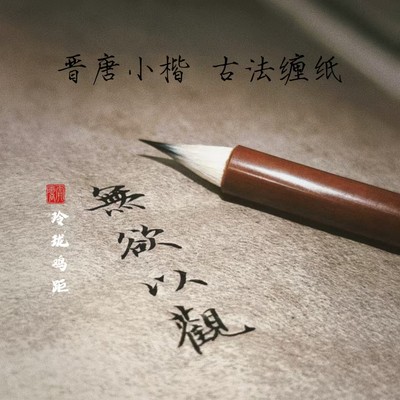 晋唐小楷 古法缠纸
無欲以觀
玲珑鸡距